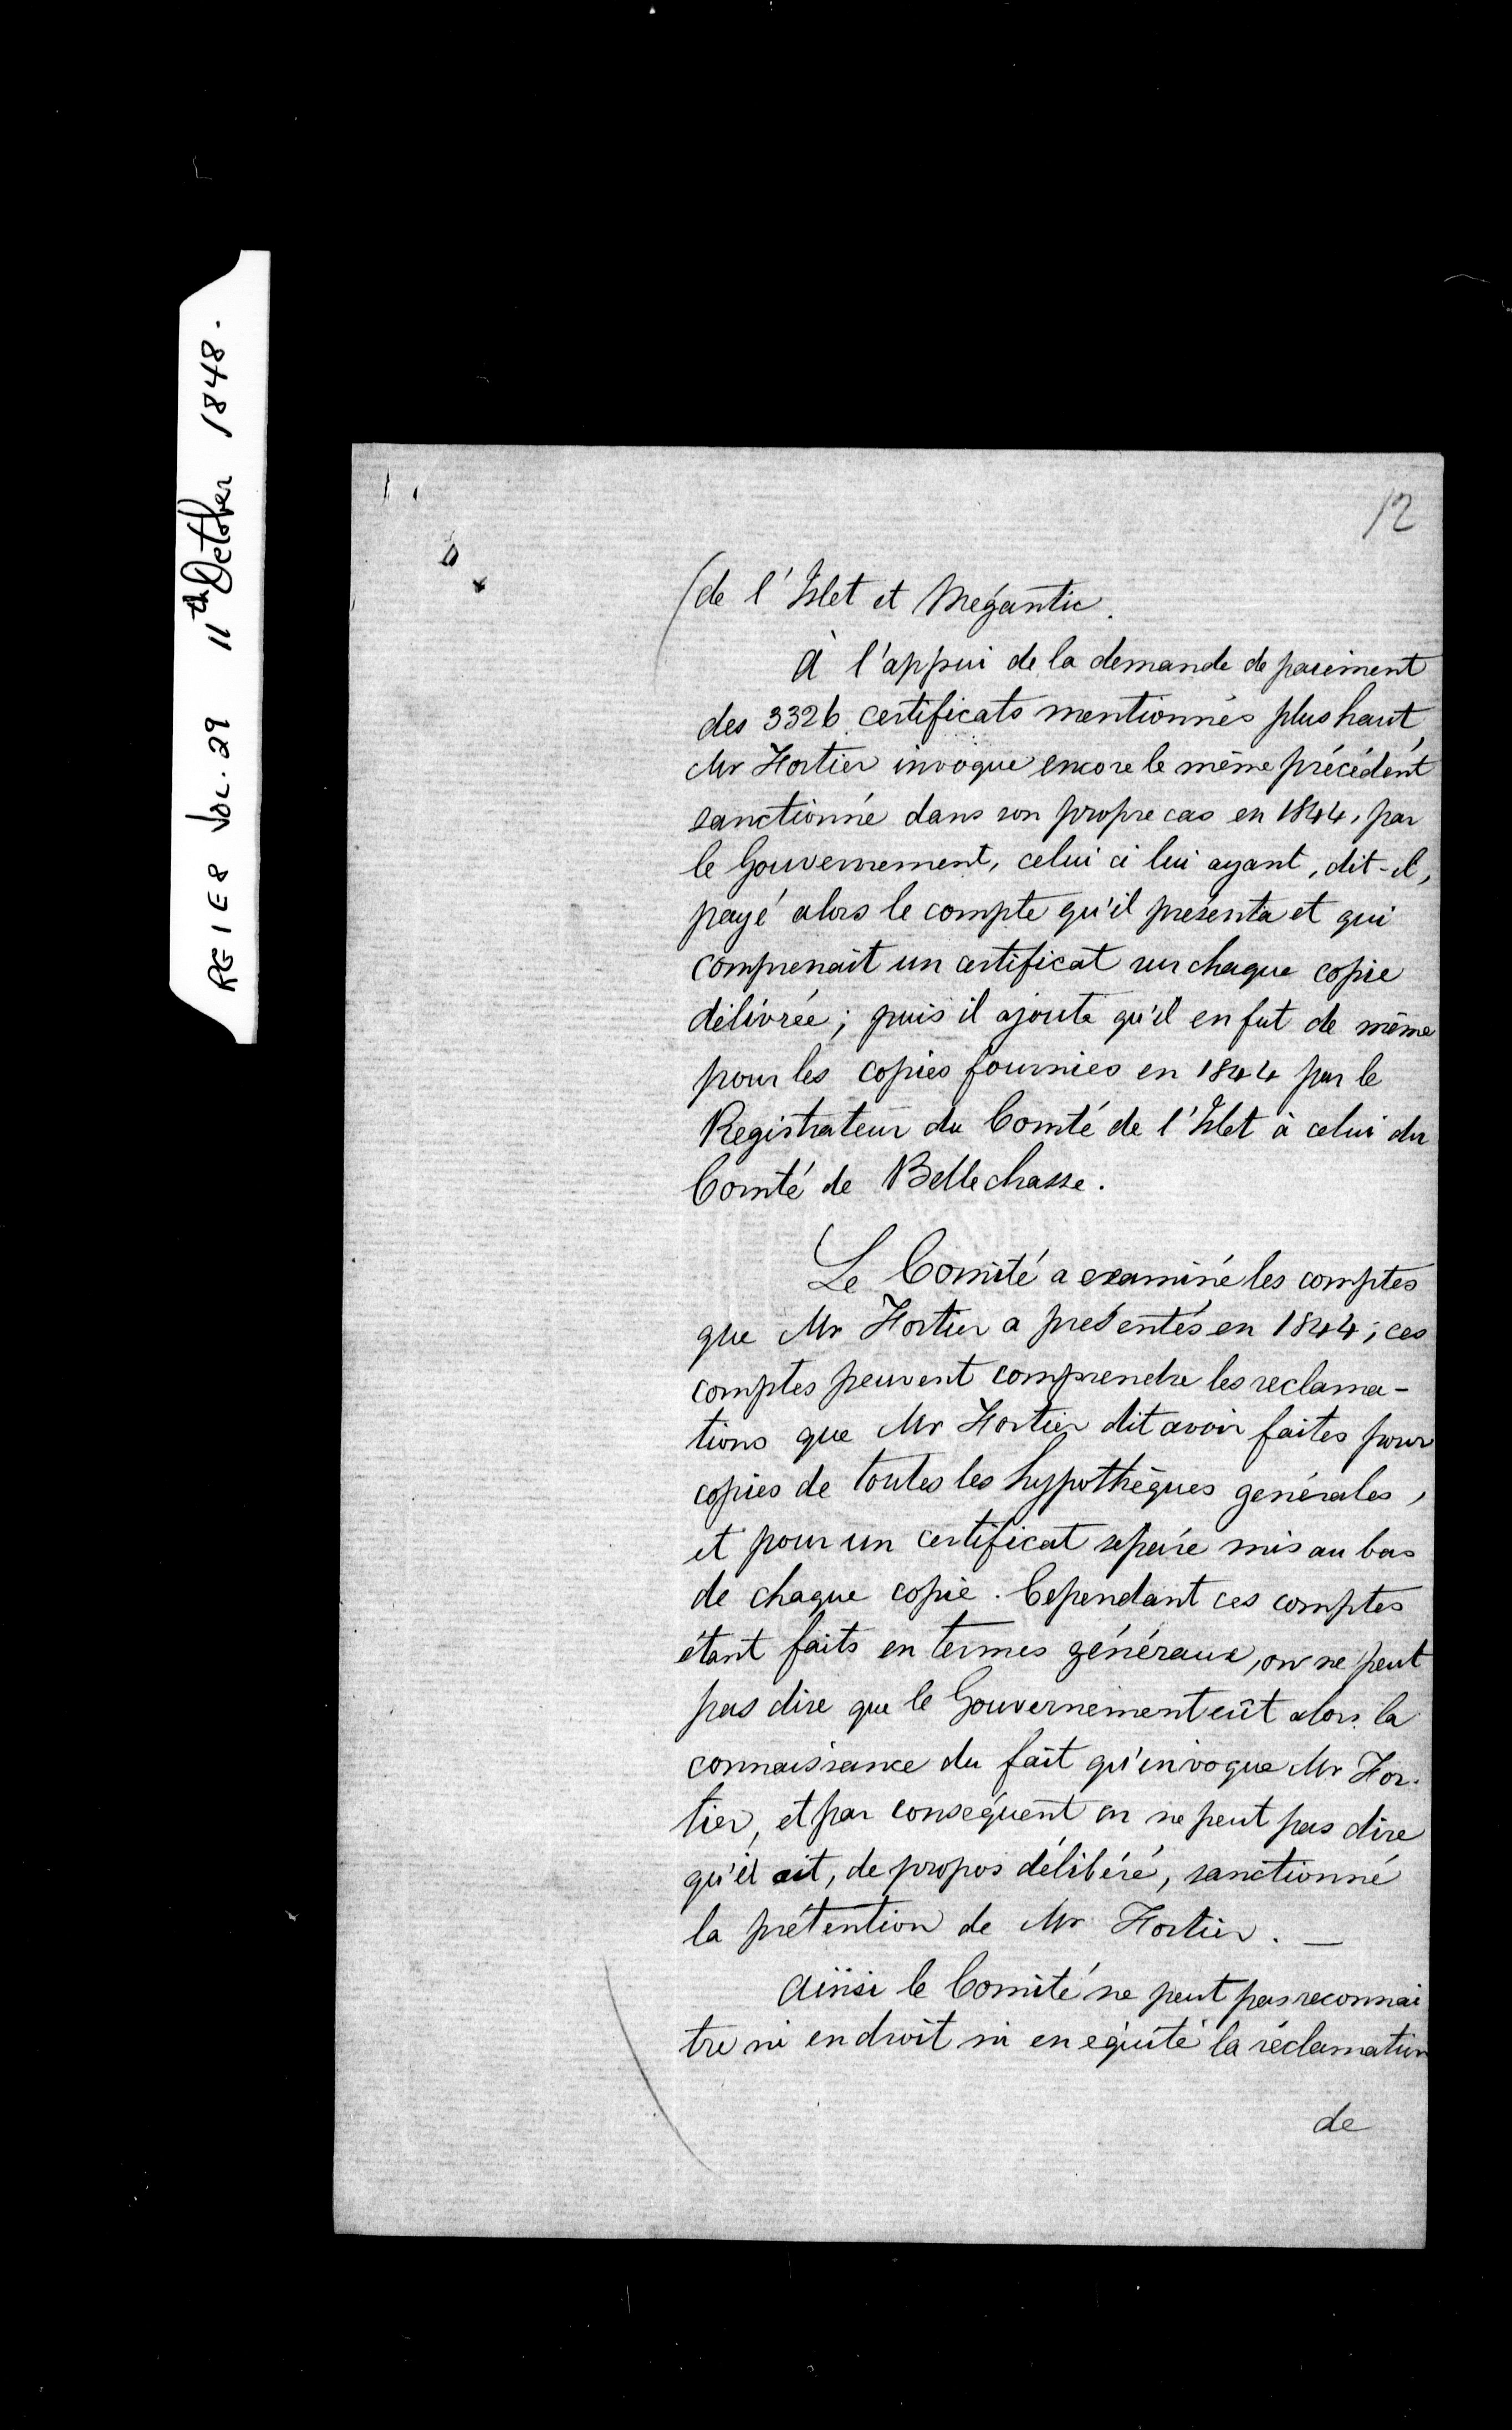 RG 1 E 8 Vol. 29 11th October 1848.
12
(de l'Islet et Mégantic.
À l'appui de la demande de paiement
des 3326 certificats mentionnés plus haut,
Mr Fortier invoque encore le même précédent
sanctionné dans son propre cas en 1844, par
le Gouvernement, celui ci lui ayant, dit-il,
payé alors le compte qu'il présenta et qui
comprenait un certificat sur chaque copie
délivrée; puis il ajoute qu'il en fut de même
pour les copies fournies en 1844 par le
Registrateur du Comté de l'Islet à celui du
Comté de Bellechasse.
Le Comité a examiné les comptes
que Mr Fortier a présentés en 1844; ces
comptes peuvent comprendre les reclama-
tions que Mr Fortier dit avoir faites pour
copies de toutes les hypothèques générales,
et pour un certificat séparé mis au bas
de chaque copie. Cependant ces comptes
étant faits en termes généraux, on ne peut
pas dire que le Gouvernement eût alors la
connaissance du fait qu'invoque Mr For-
tier, et par conséquent on ne peut pas dire
qu'il ait, de propos délibéré, sanctionné
la prétention de Mr Fortier. —
Ainsi le Comité ne peut pas reconnai
tre ni en droit ni en équité la réclamation
de